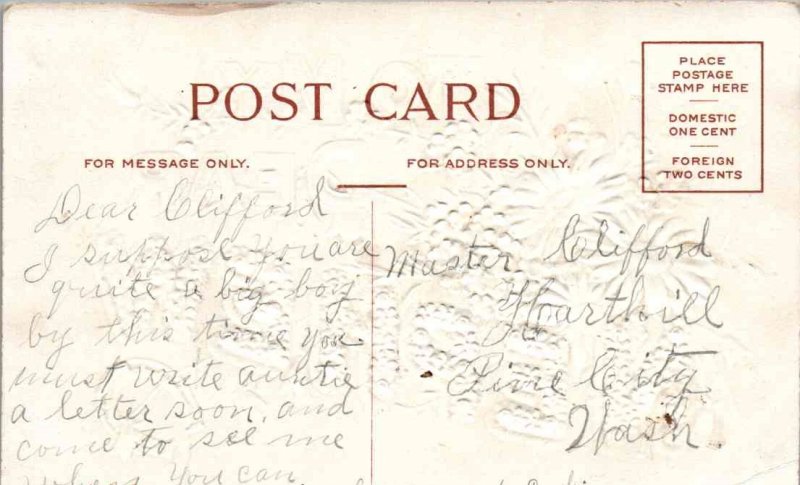 POST CARD
PLACE
POSTAGE
STAMP HERE
DOMESTIC
ONE CENT
FOREIGN
TWO CENTS
FOR MESSAGE ONLY.
FOR ADDRESS ONLY.
Dear Clifford
I suppose you are
quite a big boy
by this time you
must write auntie
a letter soon, and
come to see me
when you can
Master Clifford
Harthill
Pine City
Wash.